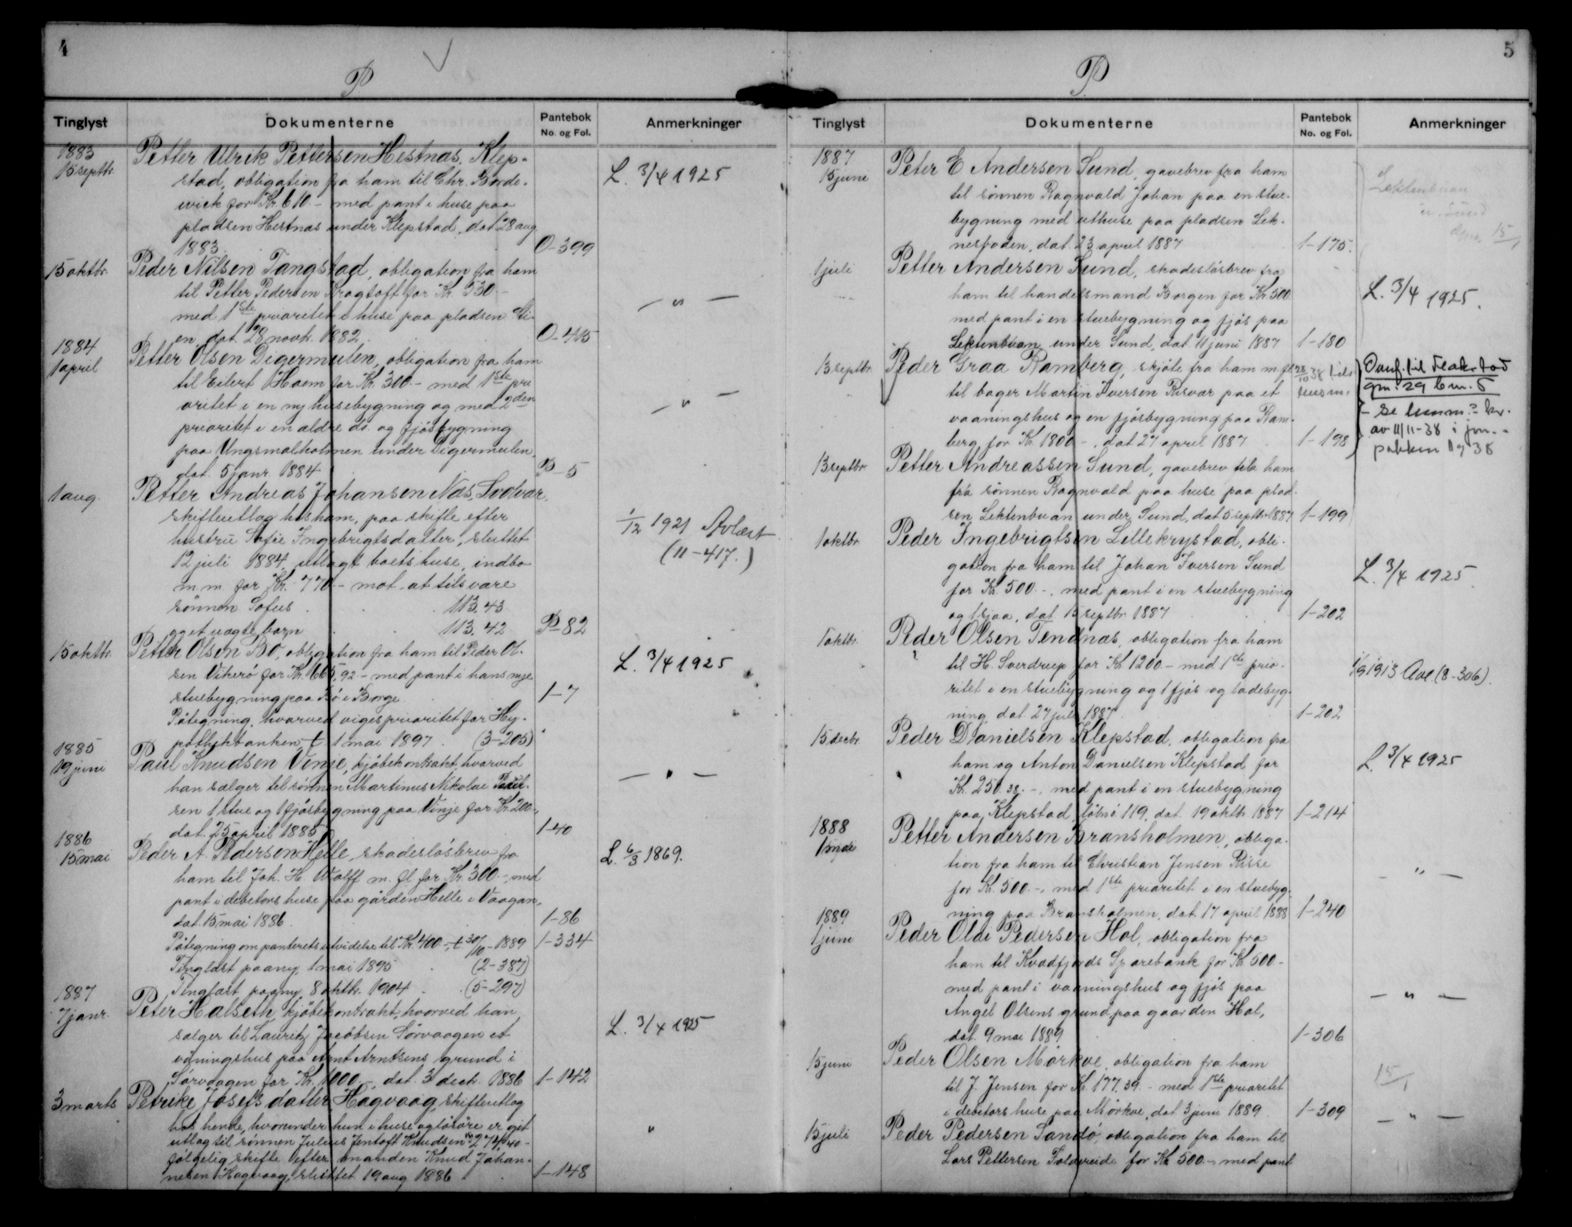 4
P
Tinglyst Dokumenterne Pantebok No. og Fol. Anmerkninger
1883
15 septbr Petter Ulrik Pettersen Hestnas, Klep-
stad, obligation fra ham til Chr. Borde-
wick for Kr. 610 - med pant i huse paa
pladsen Hestnas under Klepstad, dat 28 aug
1883 O-399
L. 3/4 1925
15 oktbr Peder Nilsen Tangstad, obligation fra ham
til Petter Pedersen Krogtoft for Kr 530 -
med 1ste prioritet i huse paa pladsen
en, dat. 28 novb. 1882 O-415
— " —
1884
1 april Petter Olsen Digermulen, obligation fra ham
til Eilert Haem for Kr 300 - med 1ste pri
oritet i en ny husebygning og med 2den
prioritet i en ældre do. og fjøsbygning
paa Ungsmalholmen under Digermulen,
dat. 5 janr 1884 P-5
— " —
1 aug. Petter Andreas Johansen Næs, Lødvar
skifteutlag hos ham, paa skifte efter
hustru Sofie Ingebrigtsdatter, sluttet
12 juli 1884, utlagt boets huse, indbo
m. m. for Kr. 770 - mot at tilsvare
sønnen Sofus 113,43
og et uægte barn 113,42 P-82
1/12 1921 Avlæst
(11-417.)
15 oktbr Petter Olsen Bø, obligation fra ham til Peder Ol-
sen Vikerø for Kr. 605,92 - med pant i hans nye
stuebygning paa Bø i Borge 1-7
Påtegning, hvorved viges prioritet for Hy-
pothekbanken t 1 mai 1897 (3-205)
L. 3/4 1925
1885
19 juni Paul Knudsen Vinje, kjøbekontrakt, hvorved
han sælger til sønnen Martinus Nikolai Paul-
sen 1 stue og 1 fjøsbygning paa Vinje for Kr 200 -,
dat. 25 april 1885 1-40
— " —
1886
15 mai Peder A. Pedersen Helle, skadesløsbrev fra
ham til Joh. H. Wolff m. fl for Kr. 300 -, med
pant i debitors huse paa gaarden Helle i Vaagan,
dat. 15 mai 1886 1-86
Påtegning om panterets utvidelse til Kr 400 - t 30/10 - 1889 1-334
Tinglæst paany 1 mai 1895 (2-387)
Tinglæst paany 8 oktbr. 1904 (5-297)
L. 6/3 1869.
1887
7 janr. Peter Halseth, kjøbekontrakt, hvorved han
sælger til Lauritz Jacobsen Sørvaagen et
våningshus paa Arnt Arntsens grund i
Sørvaagen for Kr. 1000 -, dat. 3 decb. 1886 1-142
L. 3/4 1925
3 marts Petrike Josefsdatter Hagvaag, skifteutlag
hos hende, hvorunder hun i huse og løsøre er git
utlag til sønnen Julius Jentoft Knudsen
følgelig skifte efter manden Knud Johan-
nesen Hagvaag, sluttet 19 aug 1886 1-148
"
5
P
Tinglyst Dokumenterne Pantebok No. og Fol. Anmerkninger
1887
15 juni Peter E Andersen Sund, gavebrev fra ham
til sønnen Ragnvald Johan paa en stue-
bygning med uthuse paa pladsen Lek-
nesboden, dat. 23 april 1887 1-175.
Lektenbuan
15/1
1 juli Petter Andersen Sund, skadesløsbrev fra
ham til handelsmand Borgen for Kr 500
med pant i en stuebygning og fjøs paa
Lektenbuan under Sund, dat 11 juni 1887 1-180
L. 3/4 1925.
13 septbr Peder Graa Ramberg, skjøte fra ham m. fl
til bager Martin Iversen Risvær paa et
vaaningshus og en fjøsbygning paa Ram-
berg, for Kr. 1800 -, dat 27 april 1887 1-198
Overf. til Flakstad
gnr. 29 bnr. 5
av 11/11-38 i jnr.-
pakken 38
13 septbr. Petter Andreassen Sund, gavebrev til ham
fra sønnen Ragnvald paa huse paa plad-
sen Lektenbuan under Sund, dat. 5 septbr 1887 1-199
1 oktbr Peder Ingebrigtsen Lillekrystad, obli-
gation fra ham til Johan Iversen Sund
for Kr. 500 -, med pant i en stuebygning
og fjøs, dat 15 septbr 1887 1-202
L. 3/4 1925.
1 oktbr. Peder Olsen Tendnas, obligation fra ham
til H. Sverdrup for Kr 1200 - med 1ste prio-
ritet i en stuebygning og 1 fjøs og ladebyg-
ning, dat 27 juli 1887 1-202
1913 Avl (8-306).
15 decbr Peder Danielsen Klepstad, obligation fra
ham og Anton Danielsen Klepstad for
Kr. 250,38 -, med pant i en stuebygning
paa Klepstad, løbnr 119, dat. 19 oktb 1887 1-214
L. 3/4 1925
1888
1 mai Petter Andersen Bransholmen, obliga-
tion fra ham til Christian Jensen Risse
for Kr. 500 -, med 1ste prioritet i en stuebyg-
ning paa Bransholmen, dat 17 april 1888 1-240
— " —
1889
1 juni Peder Oldi Pedersen Hol, obligation fra
ham til Kvædfjords Sparebank for Kr 500 -
med pant i vaaningshus og fjøs paa
Angel Olsens grund paa gaarden Hol,
dat 9 mai 1889 1-306
— " —
15 juni Peder Olsen Mørkve, obligation fra ham
til J. Jensen for Kr 177,39 - med 1ste prioritet
i debitors huse paa Mørkve, dat. 3 juni 1889 1-309
15/1
— " —
15 juli Peder Pedersen Sandø, obligation fra ham til
Lars Pettersen Koldereide for Kr 500 - med pant